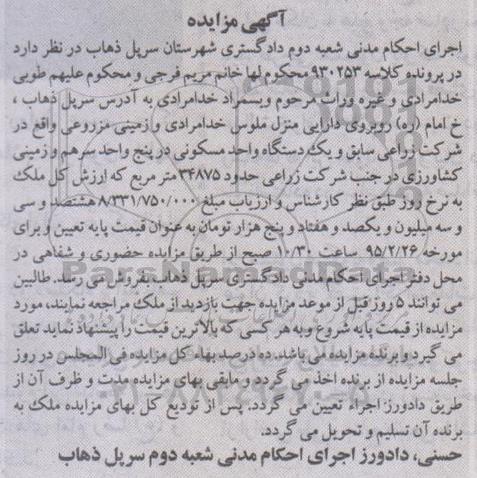 آگهی مزایده
اجرای احکام مدنی شعبه دوم دادگستری شهرستان سرپل ذهاب در نظر دارد
در پرونده کلاسه ۹۳۰۲۵۳ محکوم لها خانم مریم فرجی و محکوم علیهم طوبی
خدامرادی و غیره وراث مرحوم ویسمراد خدامرادی به آدرس سرپل ذهاب ،
خ امام (ره) روبروی دارایی منزل ملوس خدامرادی و زمینی مزروعی واقع در
شرکت زراعی سابق و یک دستگاه واحد مسکونی در پنج واحد سرهم و زمینی
کشاورزی در جنب شرکت زراعی حدود ۳۴۸۷۵ متر مربع که ارزش کل ملک
به نرخ روز طبق نظر کارشناس و ارزیاب مبلغ ۸/۳۳۱/۷۵۰/۰۰۰ هشتصد و سی
و سه میلیون و یکصد و هفتاد و پنج هزار تومان به عنوان قیمت پایه تعیین و برای
مورخه ۹۵/۲/۲۶ ساعت ۱۰/۳۰ صبح از طریق مزایده حضوری و شفاهی در
محل دفتر اجرای احکام مدنی دادگستری سرپل ذهاب بفروش می رسد. طالبین
می توانند ۵ روز قبل از موعد مزایده جهت بازدید از ملک مراجعه نمایند، مورد
مزایده از قیمت پایه شروع و به هر کسی که بالاترین قیمت را پیشنهاد نماید تعلق
می گیرد و برنده مزایده می باشد. ده درصد بهاء کل مزایده فی المجلس در روز
جلسه مزایده از برنده اخذ می گردد و مابقی بهای مزایده مدت و ظرف آن از
طریق دادورز اجراء تعیین می گردد. پس از تودیع کل بهای مزایده ملک به
برنده آن تسلیم و تحویل می گردد.
حسنی، دادورز اجرای احکام مدنی شعبه دوم سرپل ذهاب
ParsNamadData